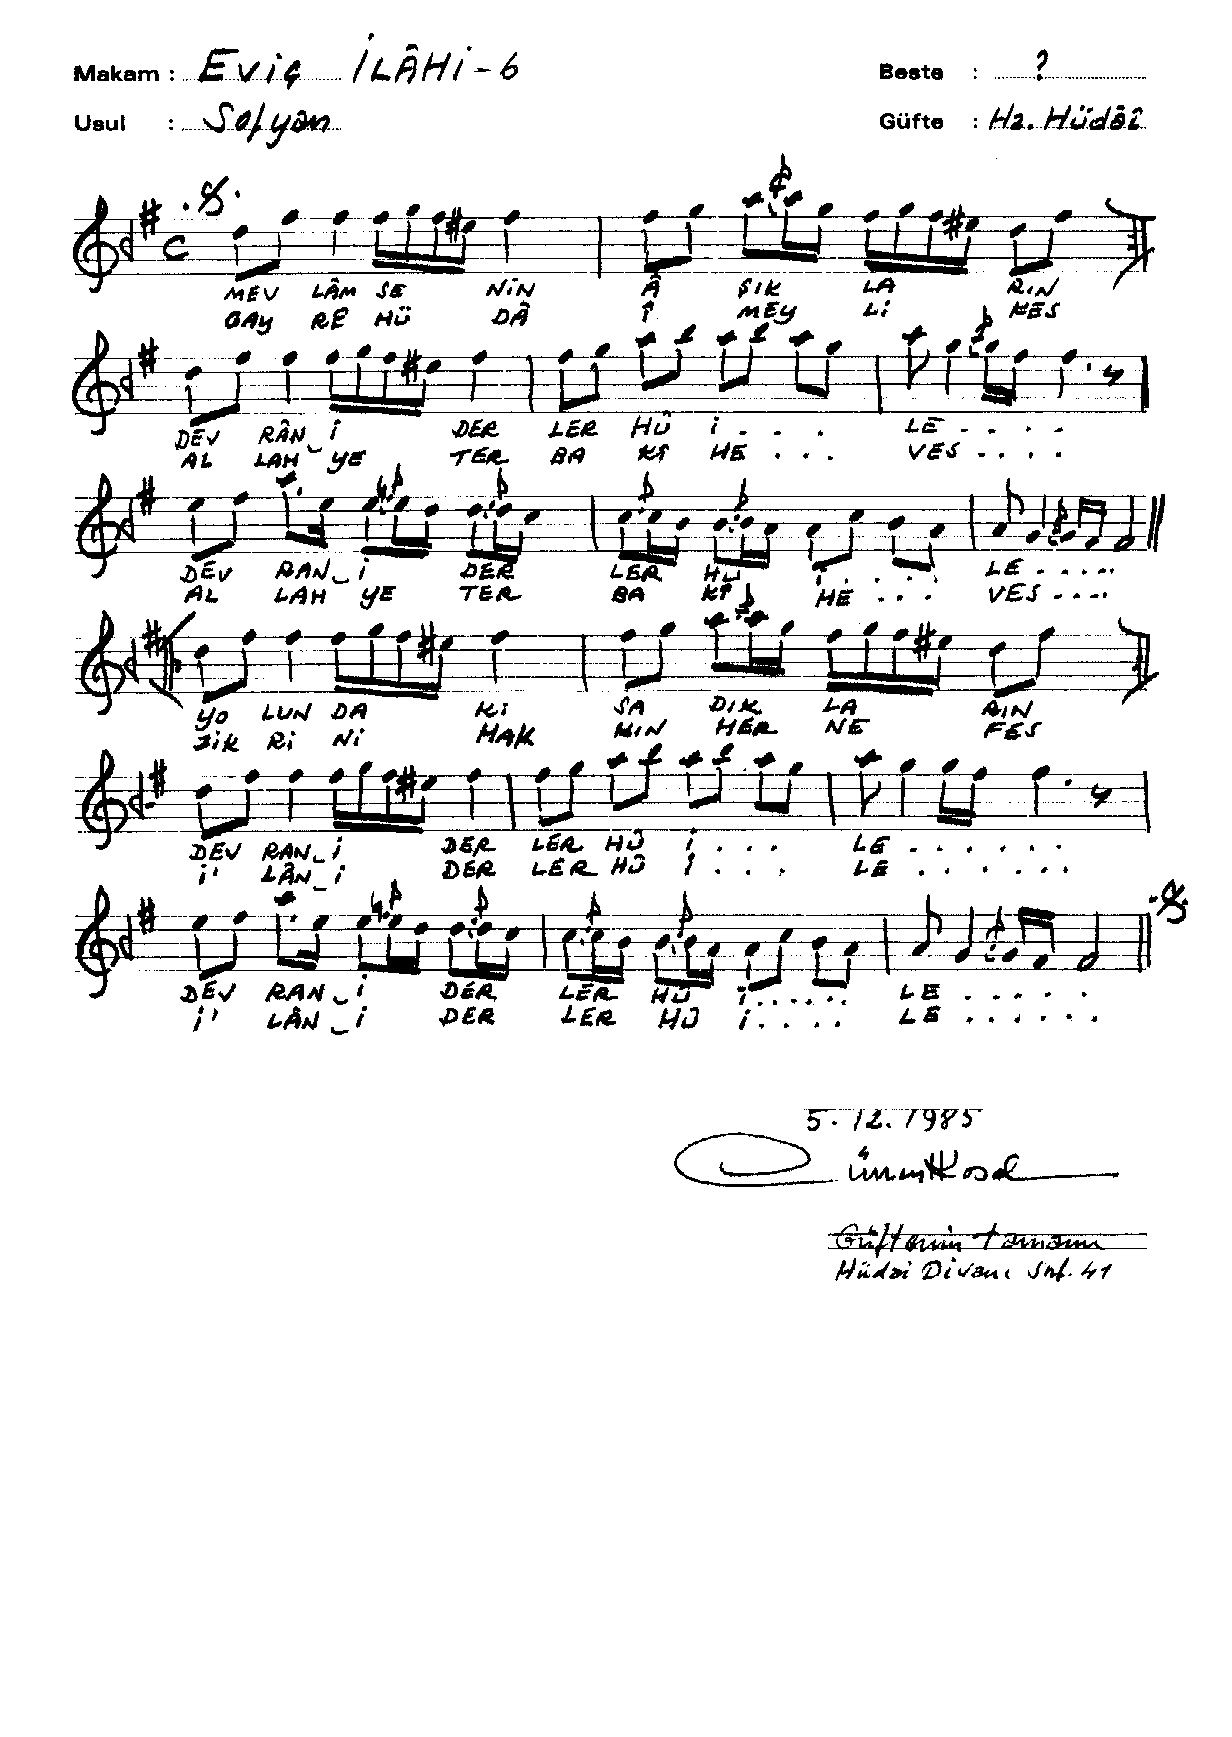 Makam : Eviç İLÂHİ - 6 Beste : ?
Usul : Sofyan Güfte : Hz. Hüdâî
MEV LÂM SE NİN Â ŞIK LA RIN
GAY RE HÜ DÂ Î MEY Lİ KES
DEV RÂN İ DER LER HÛ İ . . . . LE . . . . .
AL LAH YE TER BA KÎ HE . . . VES . . . .
DEV RAN İ DER LER HÛ İ . . . . LE . . . . .
AL LAH YE TER BA KÎ HE . . . VES . . . .
YO LUN DA Kİ SA DIK LA RIN
ZİK Rİ Nİ HAK MIN HER NE FES
DEV RAN İ DER LER HÛ İ . . . . LE . . . . . .
İ' LÂN İ DER LER HÛ İ . . . LE . . . . . .
DEV RAN İ DER LER HÛ İ . . . . . . LE . . . . .
İ' LÂN İ DER LER HÛ İ . . . . LE . . . . . .
5.12.1985
Güftenin tamamı
Hüdai Divanı Shf. 41